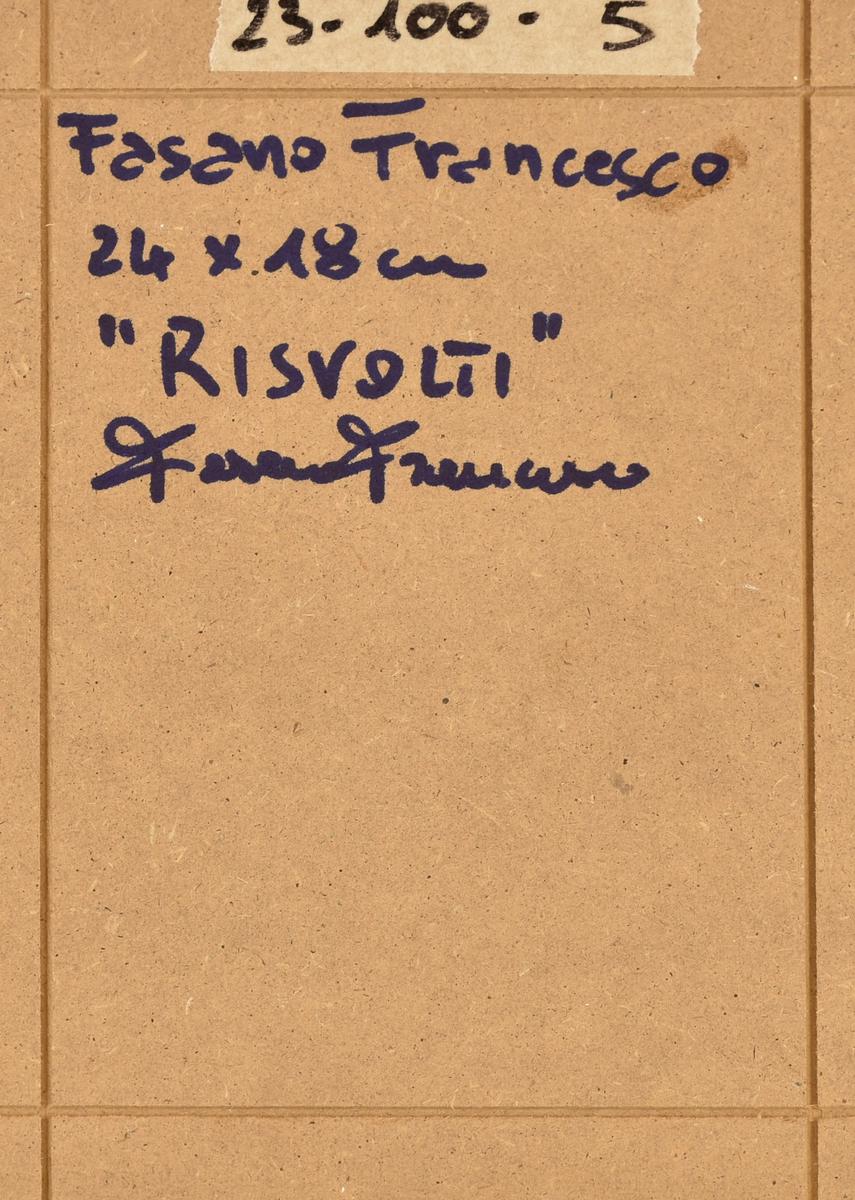 23-100 · 5
Fasano Francesco
24 x 18 cm
"RISVOLTI"
Fasano Francesco